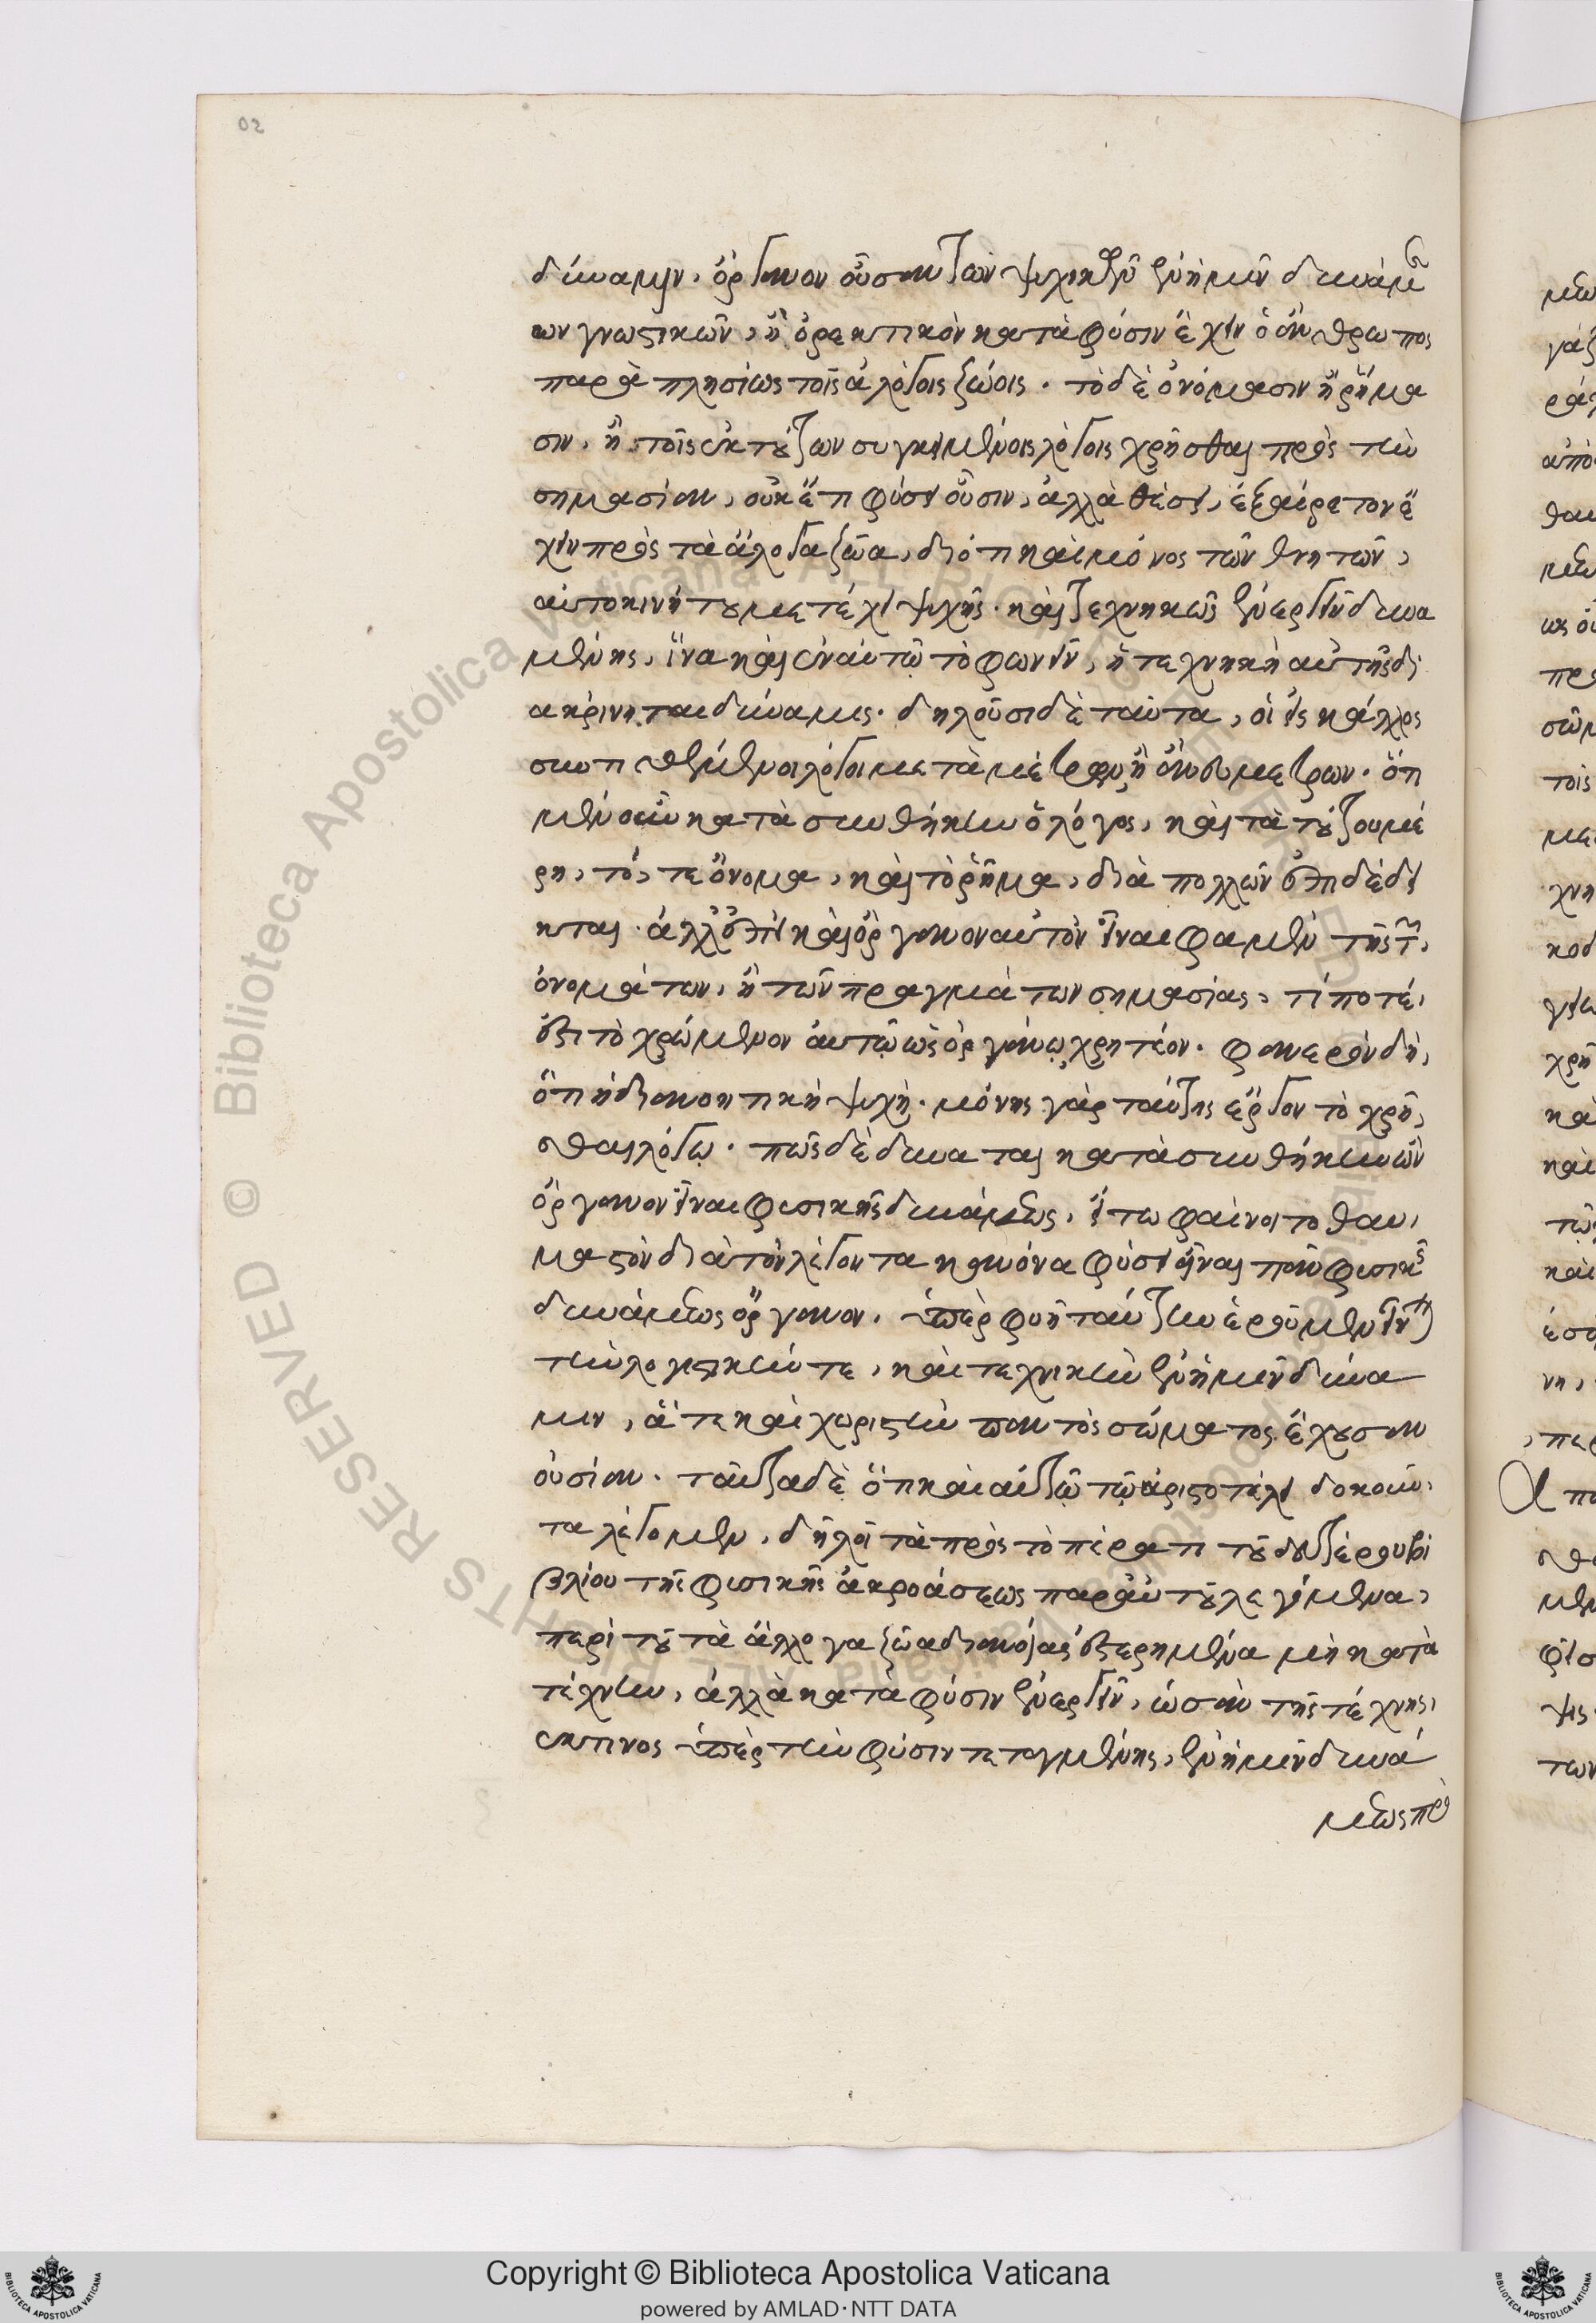 02
δύναμιν, ὄργανον οὖσαν τῶν ψυχικῶν ἐν ἡμῖν δυνάμε
ων γνωστικῶν, ἢ ὀρεκτικὸν κατὰ φύσιν ἔχειν ὁ ἄνθρωπος
παραπλησίως τοῖς ἀλόγοις ζώοις. τὸ δὲ ὀνόμασιν ἢ ῥήμα
σιν, ἢ τοῖς ἐκ τούτων συγκειμένοις λόγοις χρῆσθαι πρὸς τὴν
σημασίαν, οὐκ ἔτι φύσει οὖσιν, ἀλλὰ θέσει, ἐξαίρετον ἔ
χειν πρὸς τὰ ἄλογα ζῶα, διότι καὶ μόνος τῶν θνητῶν,
αὐτοκινήτου μετέχει ψυχῆς. καὶ τεχνηκῶς ἐνεργεῖν δυνα
μένης, ἵνα καὶ ἐν αὐτῷ τὸ φωνεῖν, ἡ τεχνηκὴ αὐτῆς δι
ακρίνηται δύναμις. δηλοῦσι δὲ ταῦτα, οἱ εἰς κάλλος
συντιθέμενοι λόγοι μετὰ μέτρων ἢ ἄνευ μέτρων. ὅτι
μὲν οὖν κατὰ συνθήκην ὁ λόγος, καὶ τὰ τούτου μέ
ρη, τό, τε ὄνομα, καὶ τὸ ῥῆμα, διὰ πολλῶν ἐπιδέδει
κται. ἀλλ' ἐπεὶ καὶ ὄργανον αὐτὸν εἶναι φαμὲν τῆς τῶν,
ὀνομάτων, ἢ τῶν πραγμάτων σημασίας, τί ποτέ,
ἐστι τὸ χρώμενον αὐτῷ ὡς ὀργάνῳ χρητέον. φανερὸν δὴ,
ὅτι ἡ διανοητικὴ ψυχὴ. μόνης γὰρ ταύτης ἔργον τὸ χρῆ,
σθαι λόγῳ. πῶς δὲ δύναται κατὰ συνθήκην ὢν
ὄργανον εἶναι φυσικῆς δυνάμεως, εἴ τω φαίνοιτο θαυ,
μαστὸν διὰ τὸν λέγοντα κανόνα φύσει εἶναι πᾶν φυσικῆς
δυνάμεως ὄργανον. ὑπερφυῆ ταύτην ἐροῦμεν εἶναι
τὴν λογιστικήν τε, καὶ τεχνικὴν ἐν ἡμῖν δύνα
μιν, ἅτε καὶ χωριστὴν παντὸς σώματος ἔχουσαν
οὐσίαν. ταῦτα δὲ ὅτι καὶ αὐτῷ τῷ ἀριστοτέλει δοκοῦν,
τα λέγομεν, δηλοῖ τὰ πρὸς τὸ πέρατι τοῦ δευτέρου βι
βλίου τῆς φυσικῆς ἀκροάσεως παρ' αὐτοῦ λεγόμενα,
περὶ τοῦ τὰ ἄλλογα ζῶα διανοίας ἐστερημένα μὴ κατὰ
τέχνην, ἀλλὰ κατὰ φύσιν ἐνεργεῖν, ὡσὰν τῆς τέχνης,
ἔκ τινος ὑπὲρ τὴν φύσιν τεταγμένης, ἐν ἡμῖν δυνά
μεως προ
Copyright © Biblioteca Apostolica Vaticana
powered by AMLAD·NTT DATA